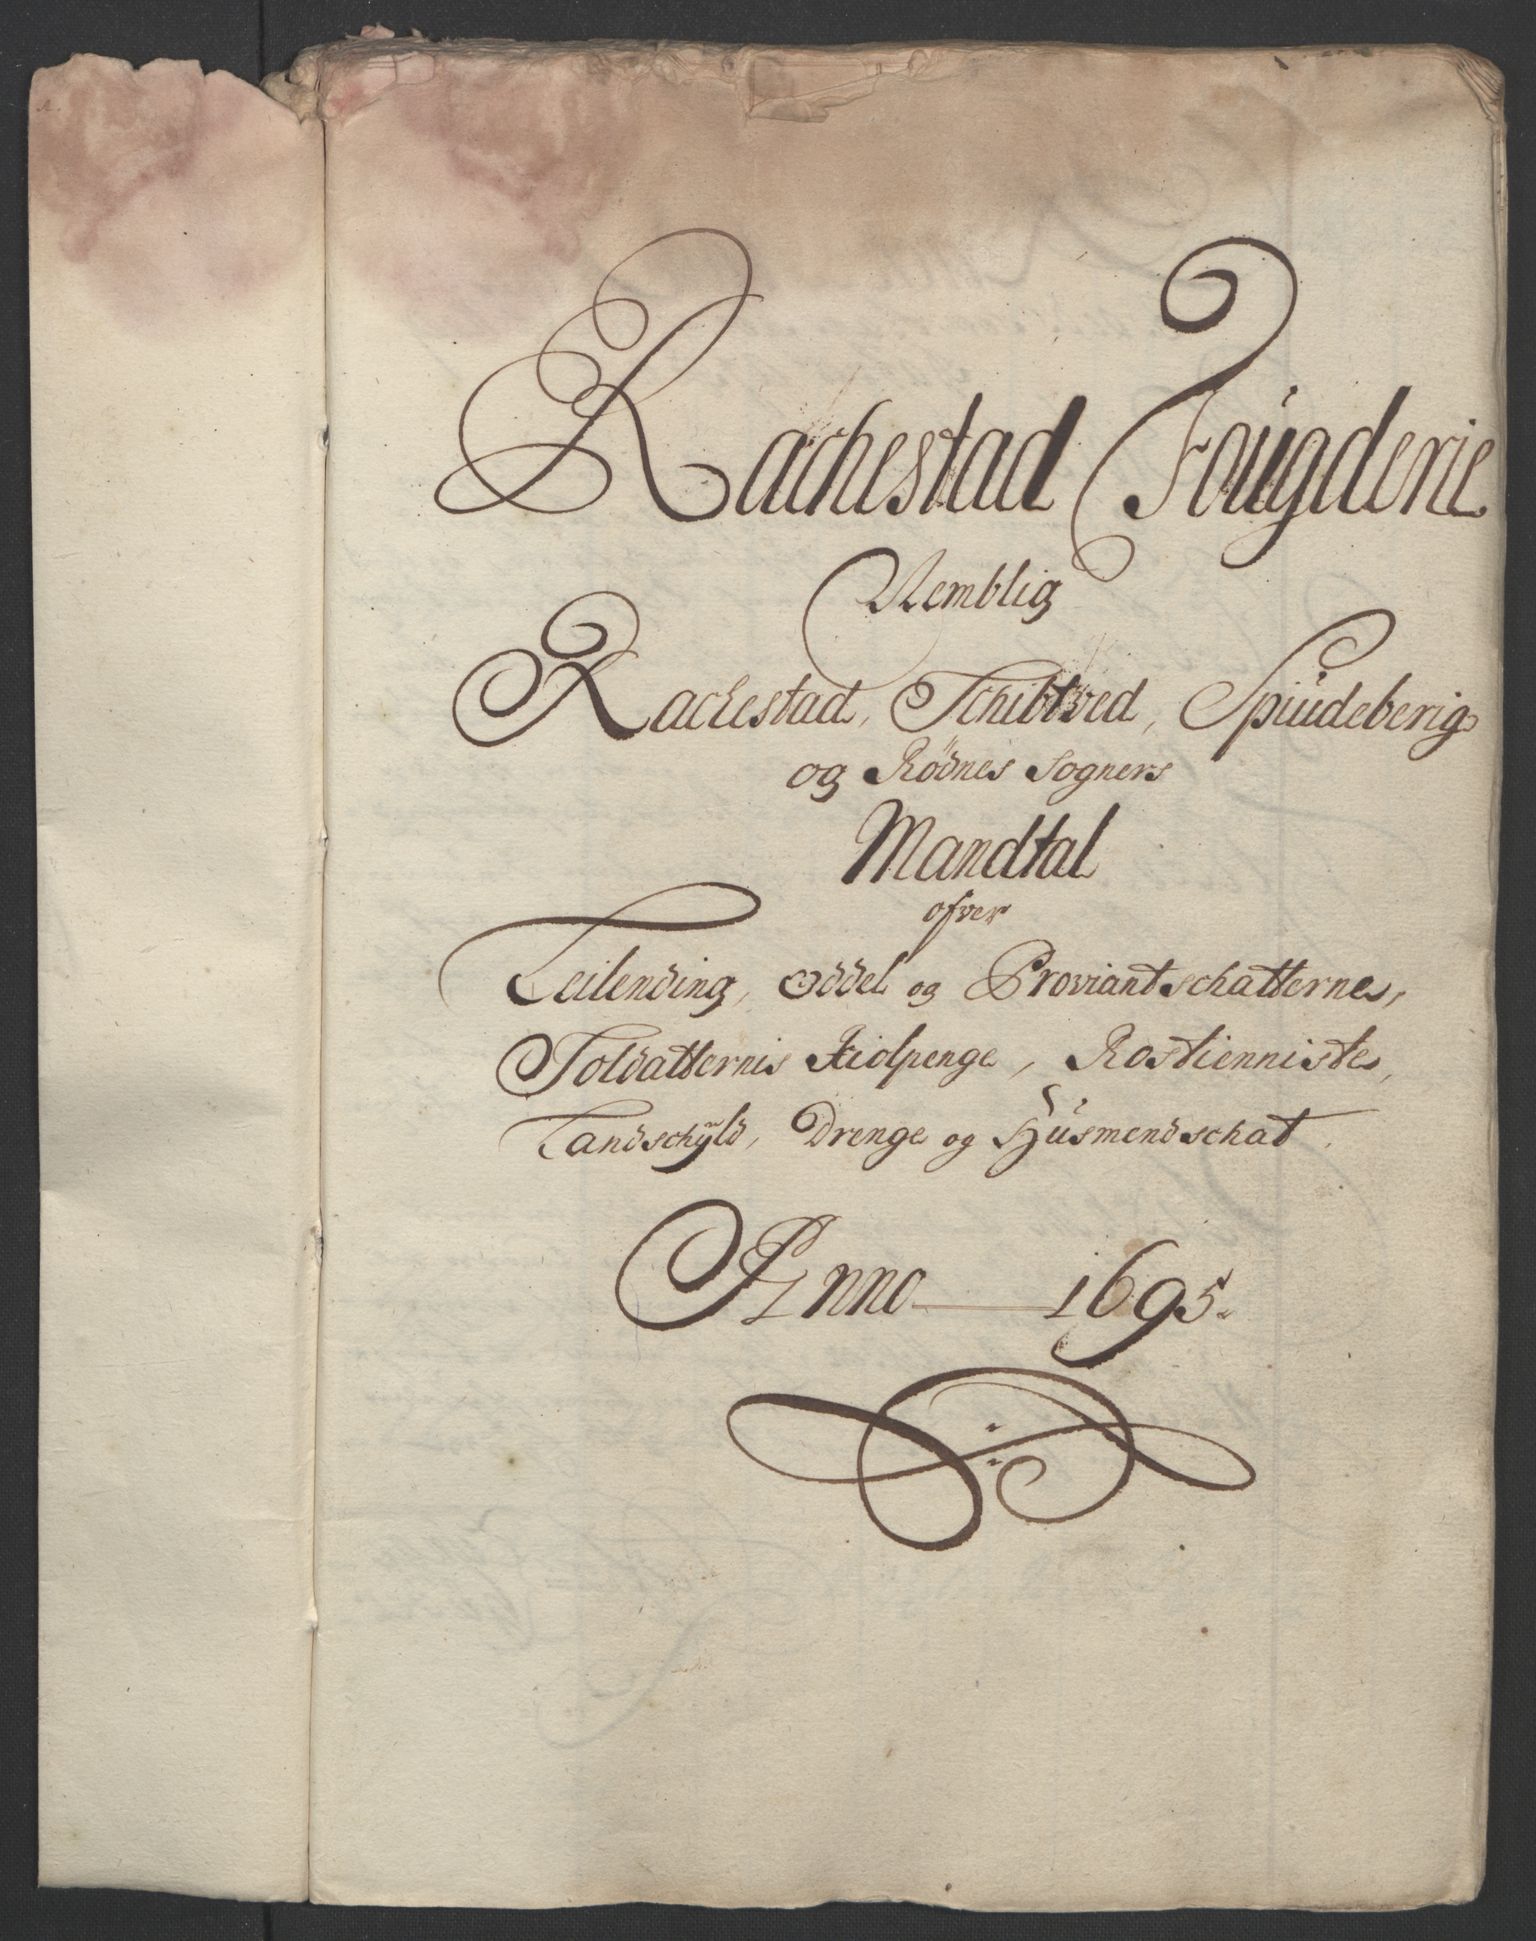 Rachestad Fougderie
Nemblig
Rachestad, Schibtved, Spüdeberig
og Rødnes Sogners
Mandtal
ofver
Leilending, Oddel og Proviantschatternes,
Soldatternis Kiolpenge, Rostienniste,
Landschyld, Drenge og Husmendschat.
Anno 1695.